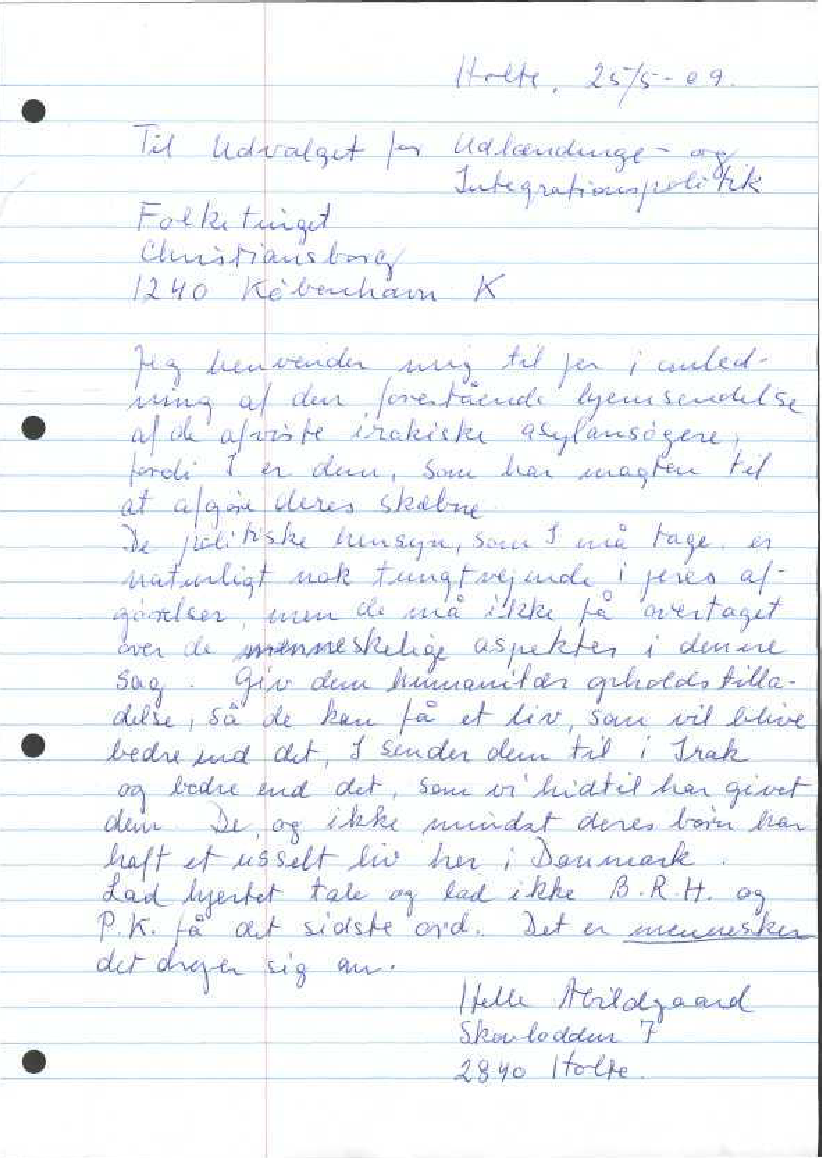 Holte, 25/5-09.
Til Udvalget for Udlændinge- og
Integrationspolitik
Folketinget
Christiansborg
1240 København K
Jeg henvender mig til jer i anled-
ning af den forestående hjemsendelse
af de afviste irakiske asylansøgere,
fordi I er dem, som har magten til
at afgøre deres skæbne.
De politiske hensyn, som I må tage, er
naturligt nok tungtvejende i jeres af-
gørelser, men de må ikke få overtaget
over de menneskelige aspekter i denne
sag. Giv dem humanitær opholdstilla-
delse, så de kan få et liv, som vil blive
bedre end det, I sender dem til i Irak
og bedre end det, som vi hidtil har givet
dem. De, og ikke mindst deres børn har
haft et usselt liv her i Danmark.
Lad hjertet tale og lad ikke B.R.H. og
P.K. få det sidste ord. Det er mennesker
det drejer sig om.
Helle Abildgaard
Skovlodden 7
2840 Holte.